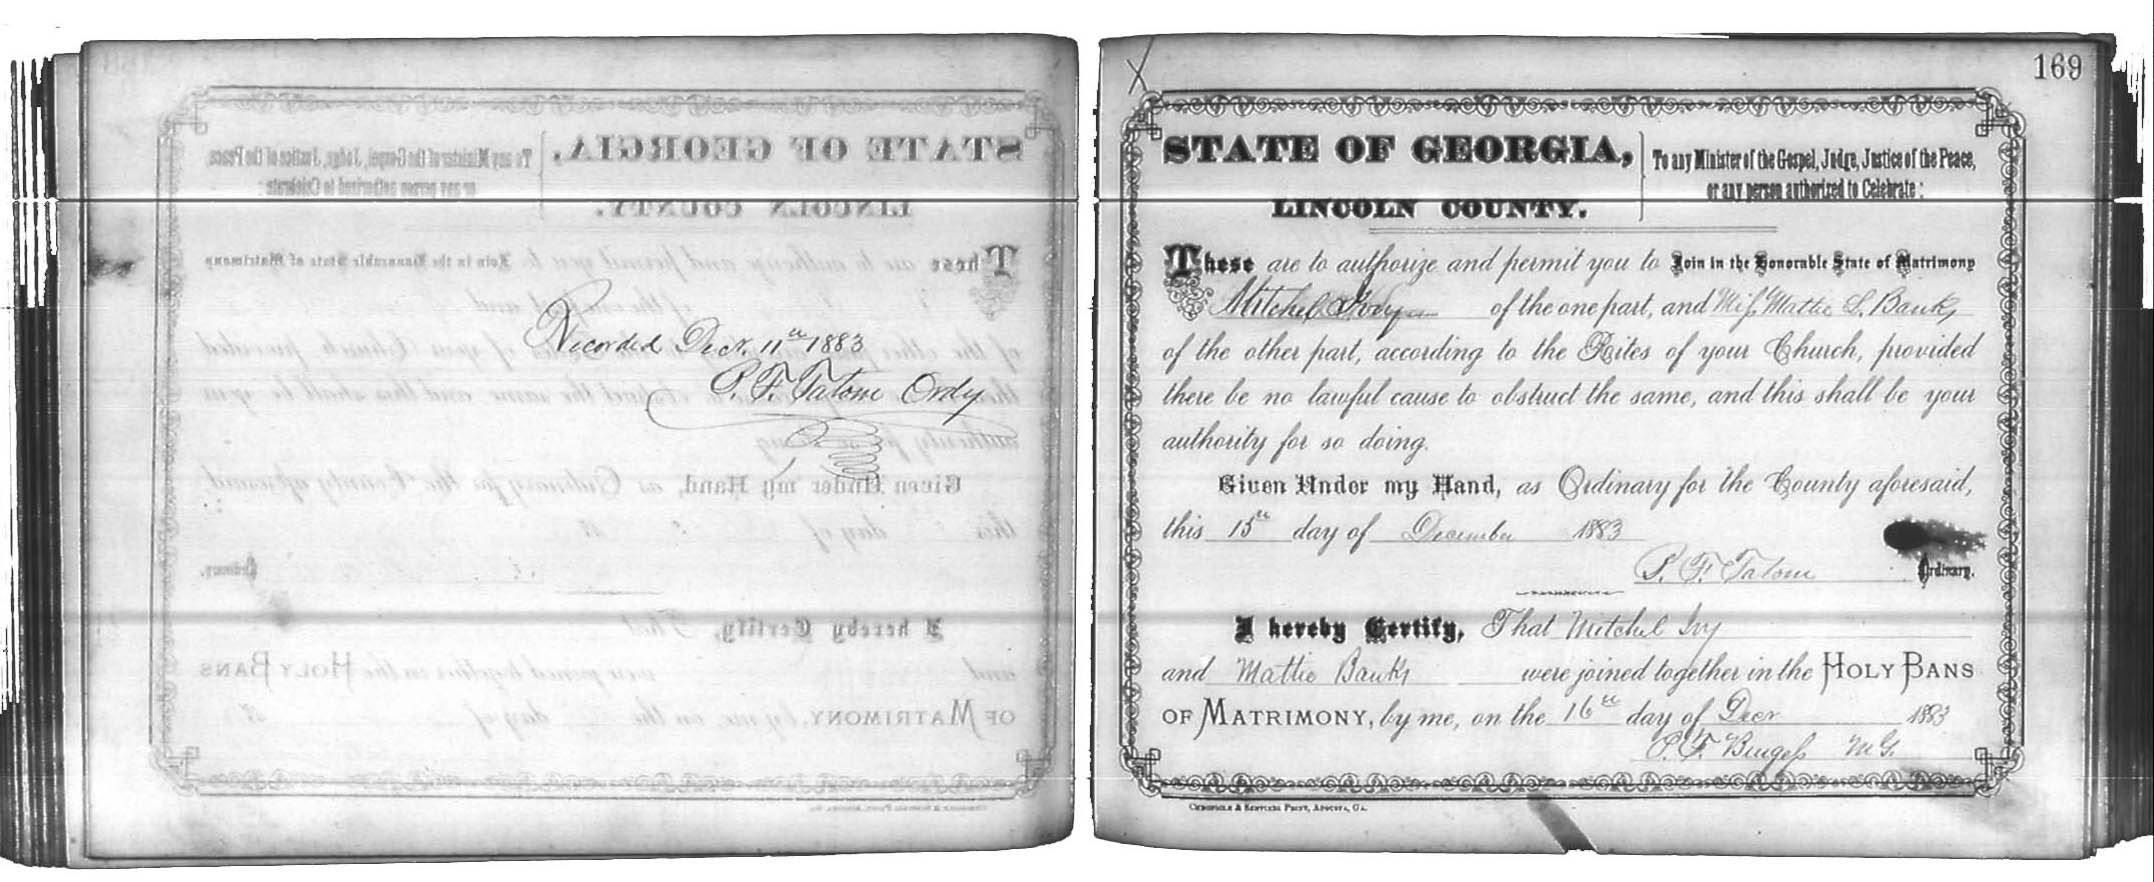 Recorded Decr. 11th 1883
P. F. Tatom Ordy
169
X
STATE OF GEORGIA,
LINCOLN COUNTY.
To any Minister of the Gospel, Judge, Justice of the Peace,
or any person authorized to Celebrate:
These are to authorize and permit you to Join in the Honorable State of Matrimony
Mitchel of the one part, and Miss Mattie S. Banks
of the other part, according to the Rites of your Church, provided
there be no lawful cause to obstruct the same, and this shall be your
authority for so doing.
Given Under my Hand, as Ordinary for the County aforesaid,
this 15th day of December 1883
P. F. Tatom Ordinary.
I hereby Certify, That Mitchel Ivy
and Mattie Banks were joined together in the HOLY BANS
OF MATRIMONY, by me, on the 16th day of Decr 1883
P. F. Burgess M.G.
CHRONICLE & SENTINEL PRINT, AUGUSTA, GA.